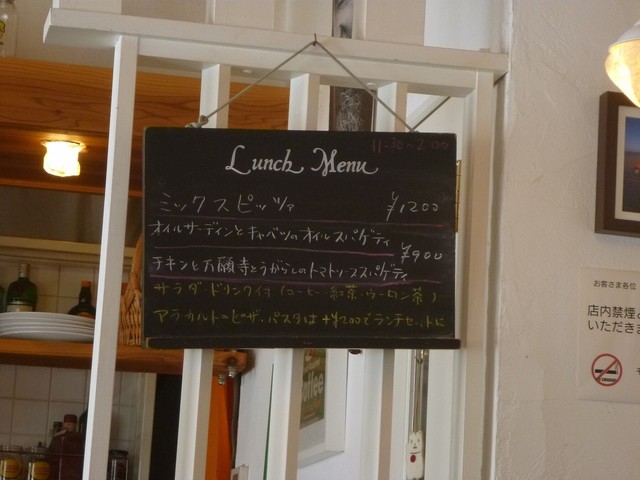 11:30~2:00
Lunch Menu
ミックスピッツァ ¥1200
オイルサーディンとキャベツのオイルスパゲティ ¥900
チキンと万願寺とうがらしのトマトソーススパゲティ
サラダ・ドリンク付 (コーヒー・紅茶・ウーロン茶)
アラカルトのピザ、パスタは +¥200でランチセットに
お客さま各位
店内禁煙と
いただきま